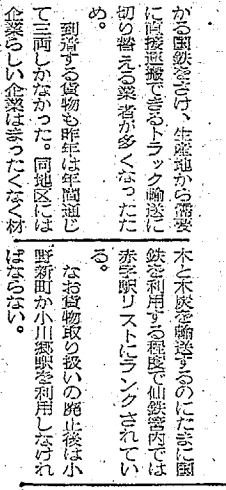 かる国鉄をさけ、生産地から需要
に直接運搬できるトラック輸送に
切り替える業者が多くなったた
め。
到着する貨物も昨年は年間通じ
て三両しかなかった。同地区には
企業らしい企業はまったくなく材
木と木炭を輸送するのにたまに国
鉄を利用する程度で仙鉄管内では
赤字駅リストにランクされてい
る。
なお貨物取り扱いの廃止後は小
野新町か小川郷駅を利用しなけれ
ばならない。